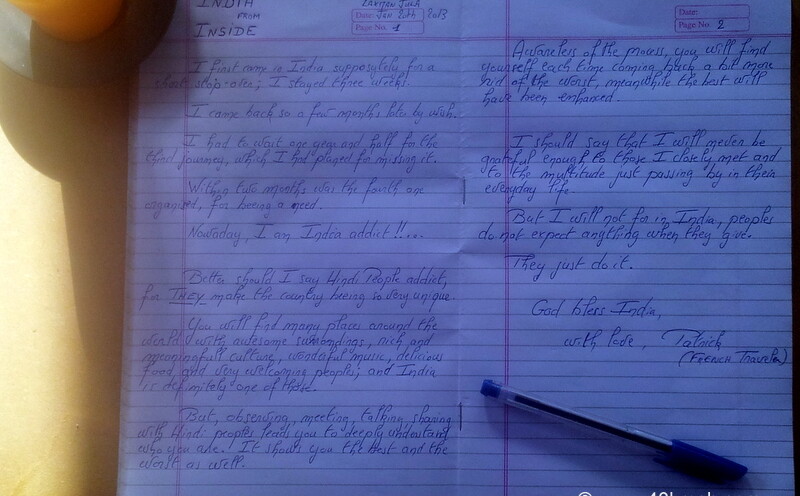 INDIA
FROM
INSIDE
LAXMAN JULA
Date: JAN 20th 2013
Page No. 1
I first came in India supposytely for a
short stop-over; I stayed three weeks.
I came back so a few months later by wish.
I had to wait one year and half for the
third journey, which I had planed for missing it.
Within two months was the fourth one
organised, for being a need.
Nowaday, I am India addict!!...
Better should I say Hindi People addict,
for THEY make the country being so very unique
You will find many places around the
world with awesome surroundings, rich and
meaningfull culture, wondeful music, delicious
food and very welcoming peoples; and India
is definitely one of those.
But, observing, meeting, talking, sharing
with Hindi peoples leads you to deeply undestand
who you are. It shows you the best and the
worst as well.
Date:
Page No. 2
Awareless of the process, you will find
yourself each time coming back a bit more
rid of the worst, meanwhile the best will
have been enhanced.
I should say that I will never be
grateful enough to those I closely met and
to the multitude just passing by in their
everyday life.
But I will not for in India, peoples
do not expect anything when they give.
They just do it.
God bless India,
with love, Patrick
(FRENCH Traveler)